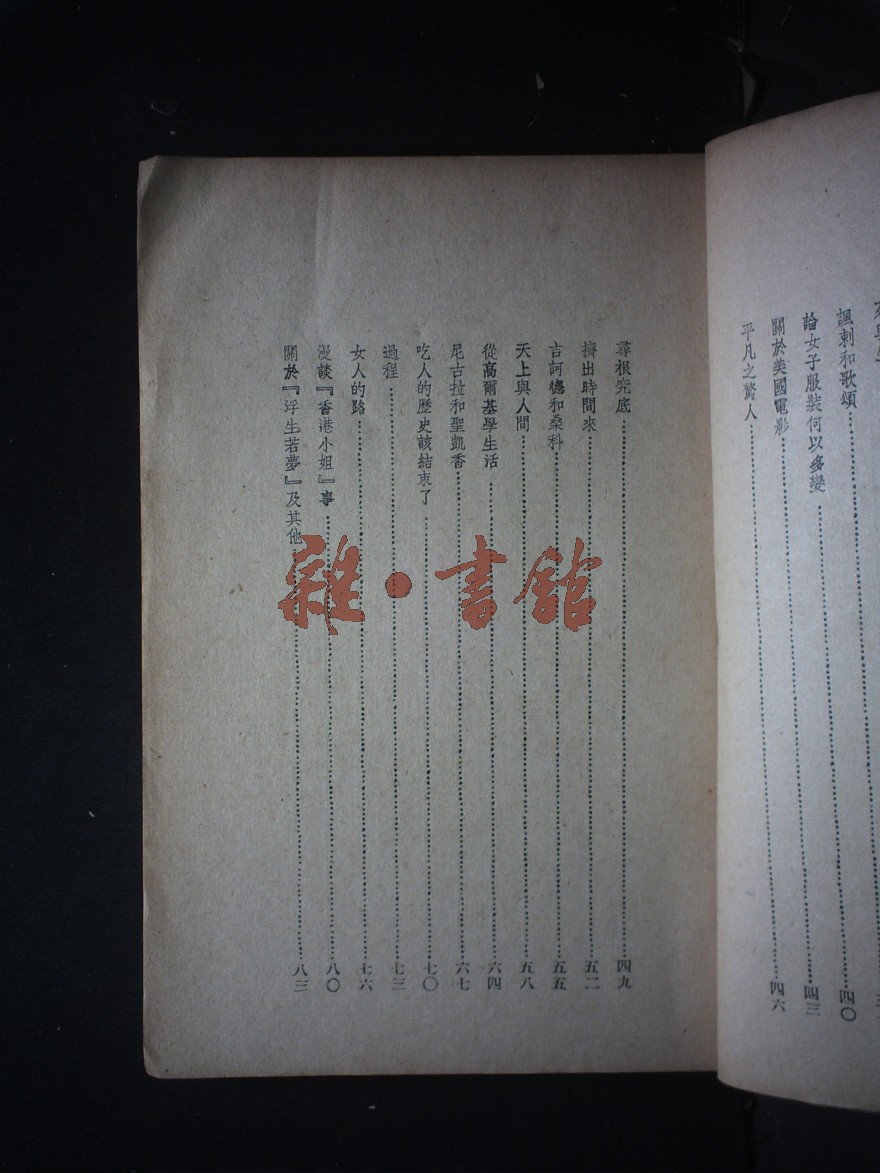 諷刺和歌頌
論女子服裝何以多變……四〇
關於美國電影……四三
平凡之驚人……四六
尋根究底……四九
擠出時間來……五二
吉訶德和桑科……五五
天上與人間……五八
從高爾基學生活……六四
尼古拉和聖凱香……六七
吃人的歷史該結束了……七〇
過程……七三
女人的路……七六
漫談『香港小姐』事……八〇
關於『浮生若夢』及其他……八三
雜·書館